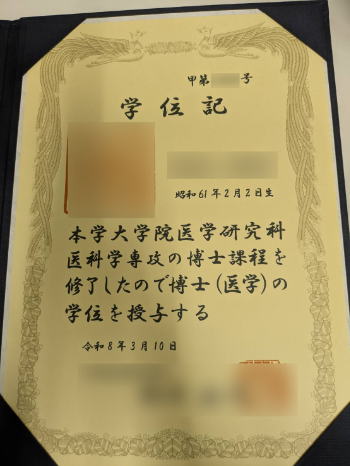 甲第 号
学位記
昭和61年2月2日生
本学大学院医学研究科
医科学専攻の博士課程を
修了したので博士(医学)の
学位を授与する
令和8年3月10日